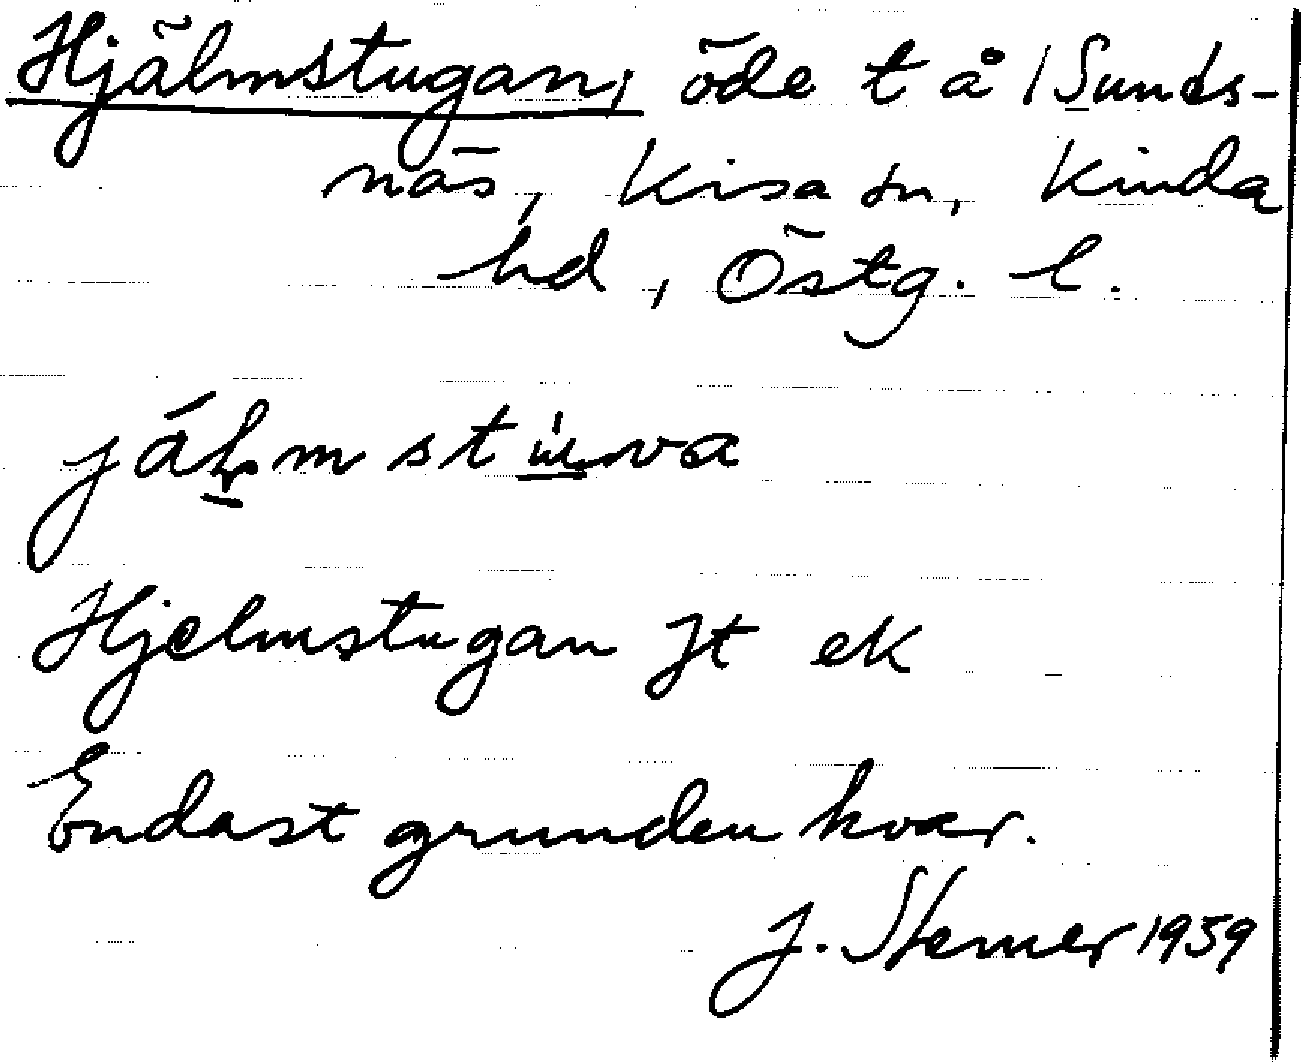 Hjälmstugan, öde t å /Sunds-
näs, Kisa sn, Kinda
hd, Östg. l.
Hjelmstugan Jt ek
Endast grunden kvar.
J. Sterner 1959